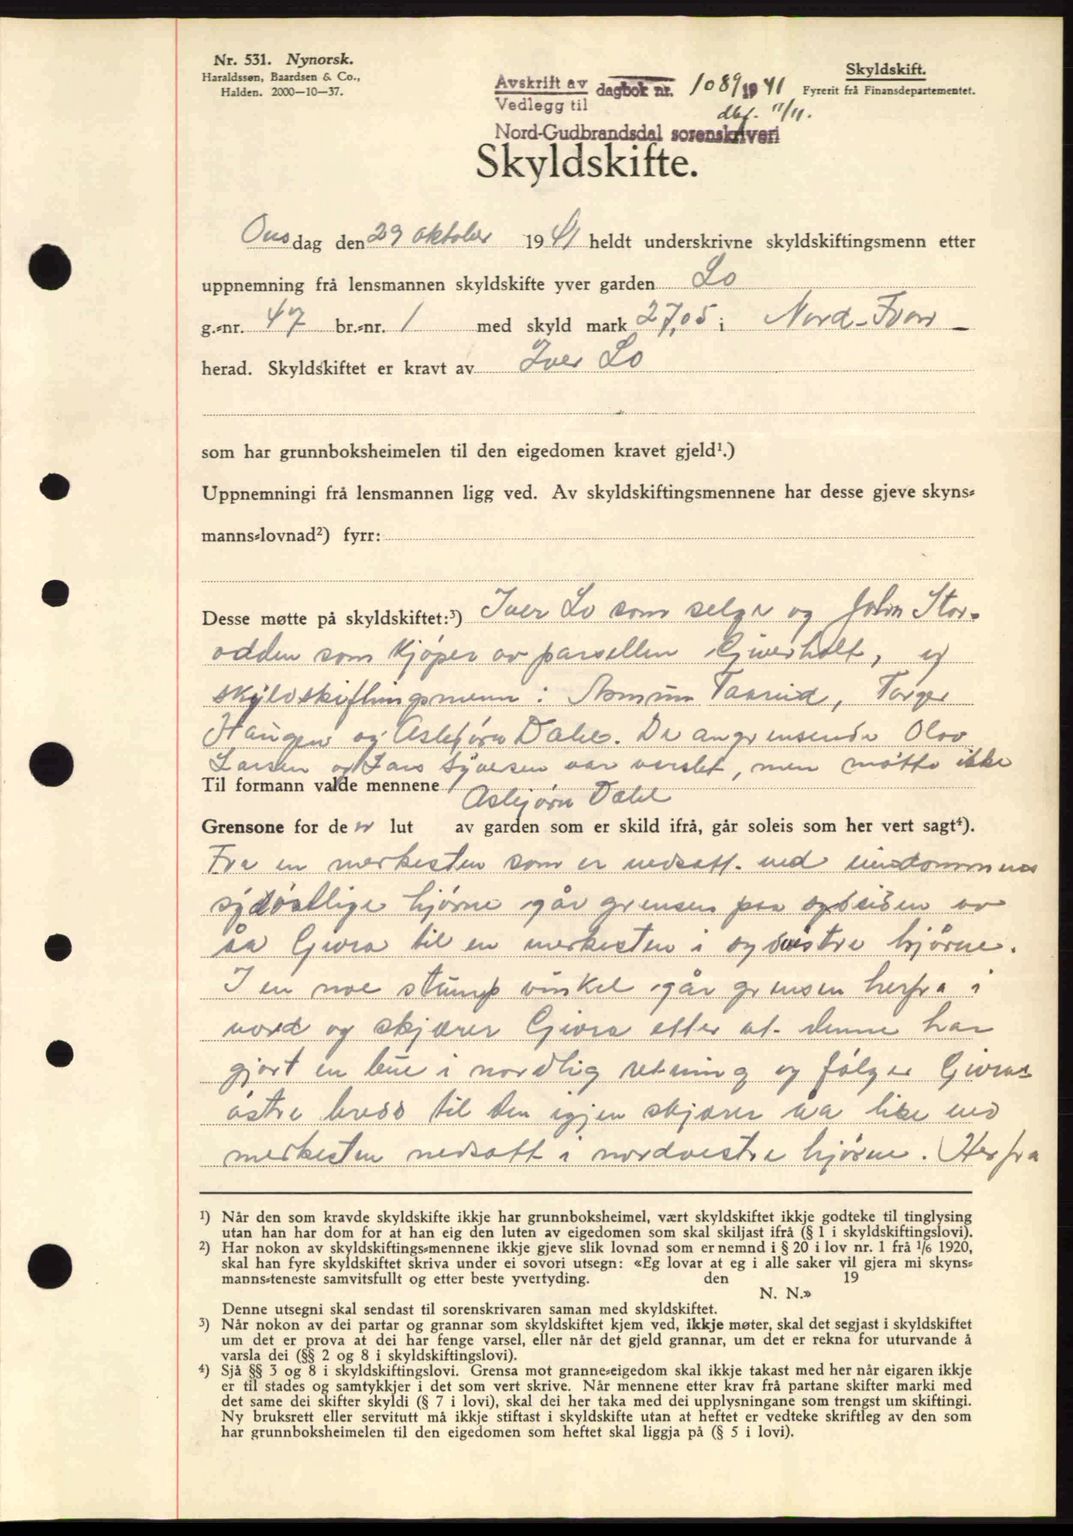 Nr. 531. Nynorsk.
Haraldssøn, Baardsen & Co.,
Halden. 2000—10—37.
Avskrift av
Vedlegg til
dagbok nr. 1089 1941
dbf. 11/11.
Nord-Gudbrandsdal sorenskriveri
Skyldskift.
Fyrerit frå Finansdepartementet.
Skyldskifte.
Onsdag den 29 oktober 1941 heldt underskrivne skyldskiftingsmenn etter
uppnemning frå lensmannen skyldskifte yver garden Lo
g.-nr. 47 br.-nr. 1 med skyld mark 27,05 i Nord-Fron
herad. Skyldskiftet er kravt av Iver Lo
som har grunnboksheimelen til den eigedomen kravet gjeld¹.)
Uppnemningi frå lensmannen ligg ved. Av skyldskiftingsmennene har desse gjeve skyns-
manns-lovnad²) fyrr:
Desse møtte på skyldskiftet:³) Iver Lo som selger og John Stor-
odden som kjöper av parsellen Giverholt, og
skyldskiftningsmenn: Taarud, Torger
Haugen og Asbjörn Dahl. De angrensende Olav
Larsen og Lars Syversen var varslet, men møtte ikke
Til formann valde mennene Asbjörn Dahl
Grensone for den lut av garden som er skild ifrå, går soleis som her vert sagt⁴).
Fra en merkesten som er nedsatt ved eiendommens
sydöstlige hjörne går grensen paa sydsiden av
åa Givra til en merkesten i sydvestre hjörne.
I en noe stump vinkel går grensen herfra i
nord og skjærer Givra etter at denne har
gjort en bue i nordlig retning og fölger Givras
östre bredd til den igjen skjærer åa like ved
merkesten nedsatt i nordvestre hjörne. Herfra
¹) Når den som kravde skyldskifte ikkje har grunnboksheimel, vært skyldskiftet ikkje godteke til tinglysing
utan han har dom for at han eig den luten av eigedomen som skal skiljast ifrå (§ 1 i skyldskiftingslovi).
²) Har nokon av skyldskiftings-mennene ikkje gjeve slik lovnad som er nemnd i § 20 i lov nr. 1 frå 1/6 1920,
skal han fyre skyldskiftet skriva under ei sovori utsegn: «Eg lovar at eg i alle saker vil gjera mi skyns-
manns-teneste samvitsfullt og etter beste yvertyding. den 19
N. N.»
Denne utsegni skal sendast til sorenskrivaren saman med skyldskiftet.
³) Når nokon av dei partar og grannar som skyldskiftet kjem ved, ikkje møter, skal det segjast i skyldskiftet
um det er prova at dei har fenge varsel, eller når det gjeld grannar, um det er rekna for uturvande å
varsla dei (§§ 2 og 8 i skyldskiftingslovi).
⁴) Sjå §§ 3 og 8 i skyldskiftingslovi. Grensa mot granne-eigedom skal ikkje takast med her når eigaren ikkje
er til stades og samtykkjer i det som vert skrive. Når mennene etter krav frå partane skifter marki med
det same dei skifter skyldi (§ 7 i lovi), skal dei her taka med dei upplysningane som trengst um skiftingi.
Ny bruksrett eller servitutt må ikkje stiftast i skyldskifte utan at heftet er vedteke skriftleg av den som
har grunnboksheimelen til den eigedomen som heftet skal liggja på (§ 5 i lovi).